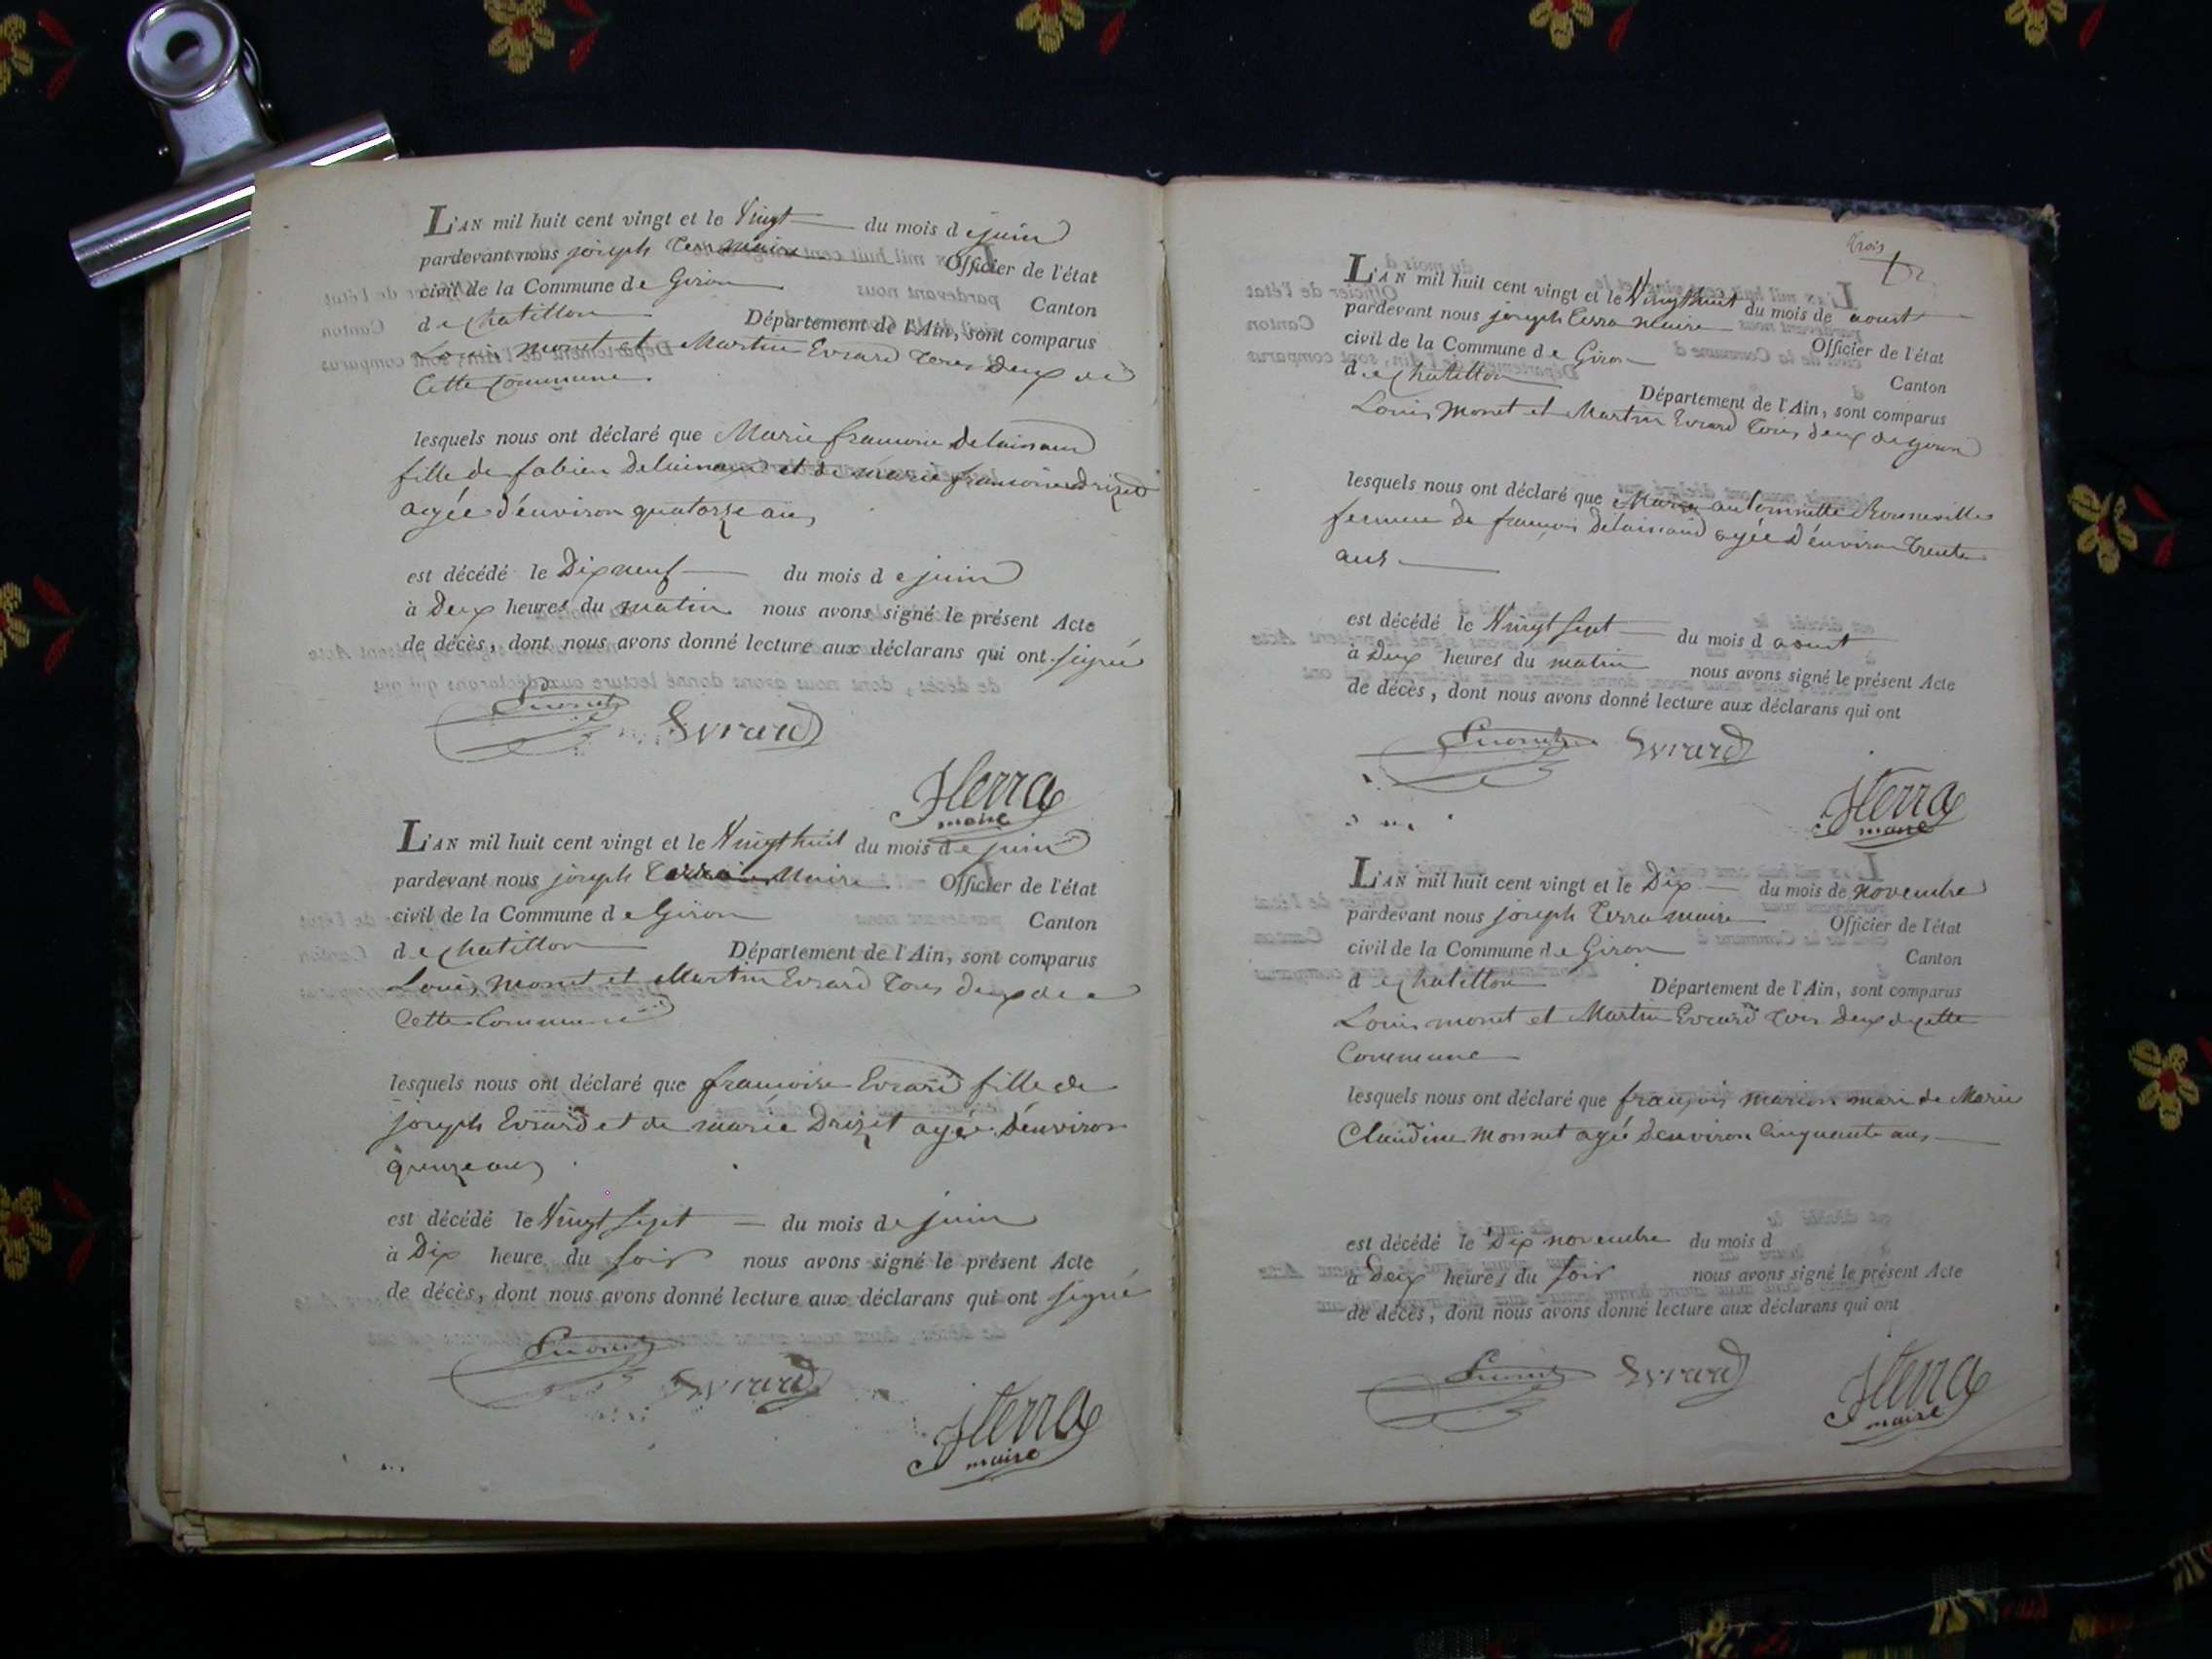 L'AN mil huit cent vingt et le Vingt du mois de juin
pardevant nous joseph Terra maire Officier de l'état
civil de la Commune de Giron Canton
de chatillon Département de l'Ain, sont comparus
Louis monet et Martin Evrard tous deux de
Cette Commune
lesquels nous ont déclaré que Marie francoise Delainaud
fille de fabien Delainaud et de marie francoise Drizet
agée d'environ quatorze ans
est décédé le Dix neuf du mois de juin
à Deux heures du matin nous avons signé le présent Acte
de décès, dont nous avons donné lecture aux déclarans qui ont signé
Evrard
JTerra
maire
L'AN mil huit cent vingt et le Vingt huit du mois de juin
pardevant nous joseph Terra Maire Officier de l'état
civil de la Commune de Giron Canton
de chatillon Département de l'Ain, sont comparus
Louis monet et Martin Evrard tous deux de
Cette Commune
lesquels nous ont déclaré que francoise Evrard fille de
joseph Evrard et de marie Drizet agée d'environ
quinze ans
est décédé le Vingt sept du mois de juin
à Dix heure du soir nous avons signé le présent Acte
de décès, dont nous avons donné lecture aux déclarans qui ont signé
Evrard
JTerra
maire
trois
L'AN mil huit cent vingt et le Vingt huit du mois de aoust
pardevant nous joseph Terra maire Officier de l'état
civil de la Commune de Giron Canton
de chatillon Département de l'Ain, sont comparus
Louis monet et Martin Evrard tous deux de giron
lesquels nous ont déclaré que Marie antoinette
femme de francois Delainaud agée d'environ trente
ans
est décédé le Vingt sept du mois d aout
à Deux heures du matin nous avons signé le présent Acte
de décès, dont nous avons donné lecture aux déclarans qui ont
Evrard
JTerra
maire
L'AN mil huit cent vingt et le Dix du mois de novembre
pardevant nous joseph Terra maire Officier de l'état
civil de la Commune de Giron Canton
de chatillon Département de l'Ain, sont comparus
Louis monet et Martin Evrard tous deux de cette
Commune
lesquels nous ont déclaré que françois marion mari de Marie
Claudine Monnet agé d'environ Cinquante ans
est décédé le Dix novembre du mois d
à Deux heures du soir nous avons signé le présent Acte
de décès, dont nous avons donné lecture aux déclarans qui ont
Evrard
JTerra
maire